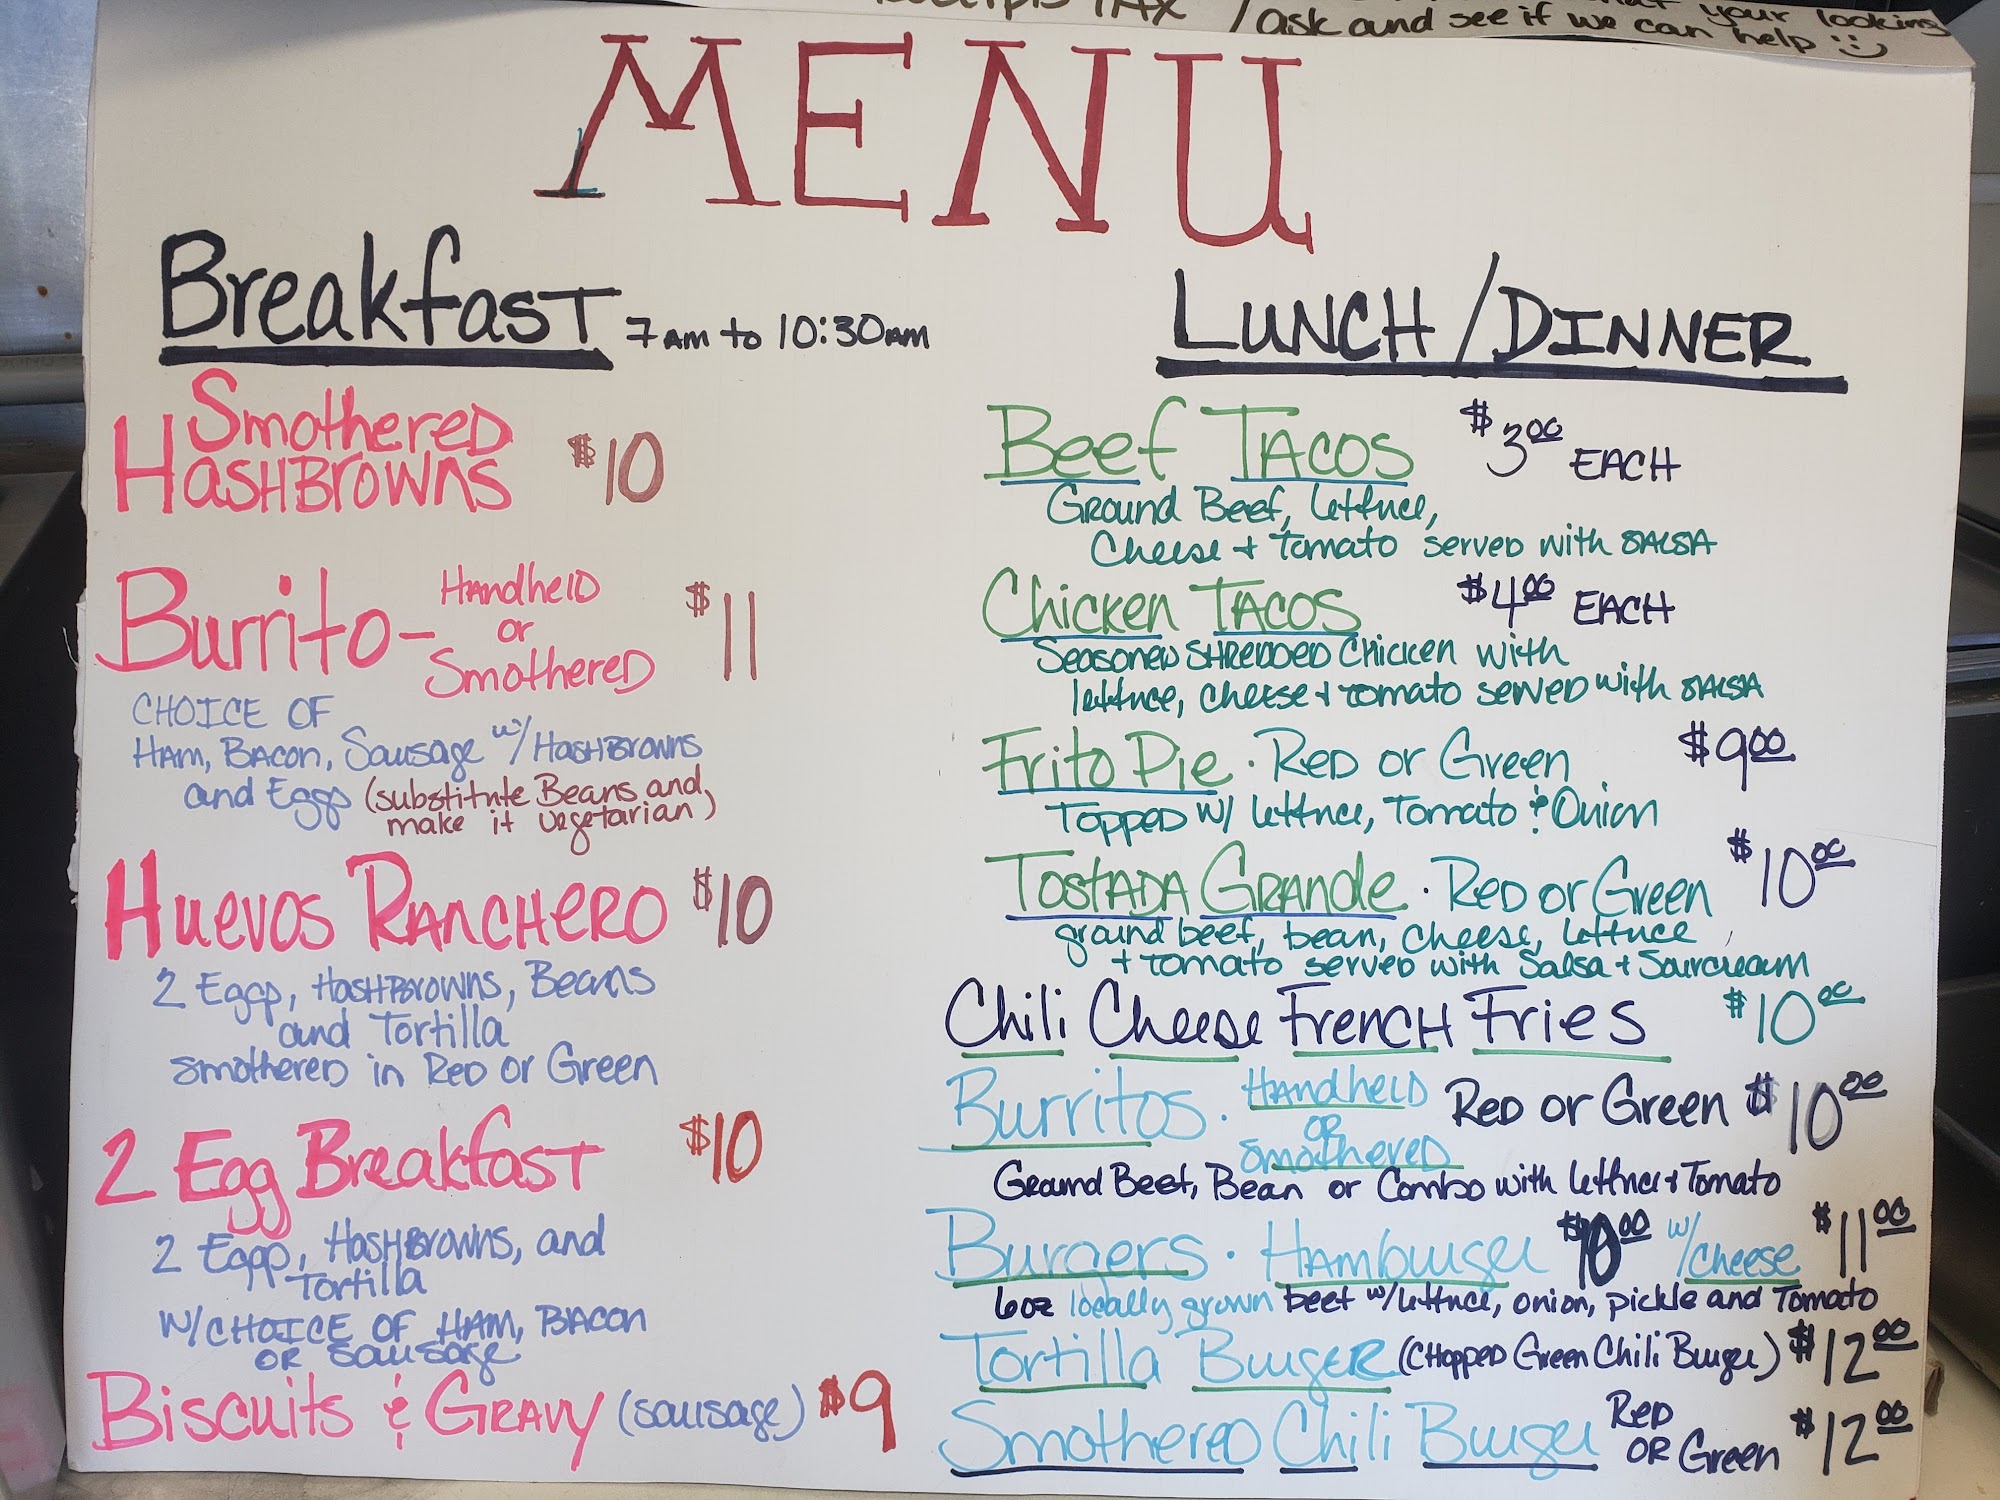 your looking
ask and see if we can help :)
MENU
Breakfast 7am to 10:30am
Smothered
HashBrowns $10
Burrito - Handheld
or
Smothered $11
CHOICE OF
Ham, Bacon, Sausage w/ HashBrowns
and Eggs (substitute Beans and
make it vegetarian)
Huevos Ranchero $10
2 Eggs, HashBrowns, Beans
and Tortilla
smothered in Red or Green
2 Egg Breakfast $10
2 Eggs, HashBrowns, and
Tortilla
w/ CHOICE OF HAM, BACON
OR Sausage
Biscuits & Gravy (sausage) $9
LUNCH / DINNER
Beef Tacos $3.00 EACH
Ground Beef, lettuce,
Cheese + Tomato served with SALSA
Chicken Tacos $4.00 EACH
Seasoned Shredded Chicken with
lettuce, cheese + tomato served with SALSA
Frito Pie • Red or Green $9.00
Topped w/ lettuce, Tomato & Onion
Tostada Grande • Red or Green $10.00
ground beef, bean, cheese, lettuce
+ tomato served with Salsa + Sourcream
Chili Cheese French Fries $10.00
Burritos • Handheld
OR
Smothered Red or Green $10.00
Ground Beef, Bean or Combo with lettuce + Tomato
Burgers • Hamburger $10.00 w/cheese $11.00
6oz locally grown beef w/lettuce, onion, pickle and Tomato
Tortilla Burger (Chopped Green Chili Burger) $12.00
Smothered Chili Burger Red
OR Green $12.00